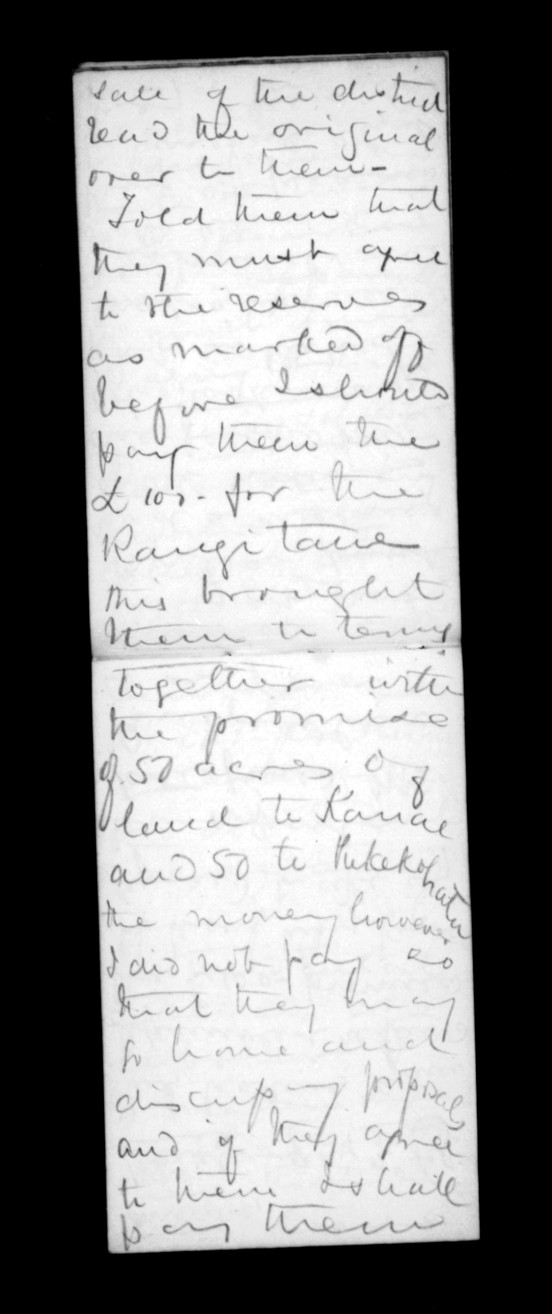 sale of the district
read the original
over to them -
Told them that
they must agree
to the reserves
as marked off
before I should
pay them the
£100- for the
Rangitane
this brought
them to terms
together with
the promise
of 50 acres of
land to Kanae
and 50 to Pukekohatu
the money however
I did not pay so
that they may
go home and
discuss my proposals
and if they agree
to them I shall
pay them